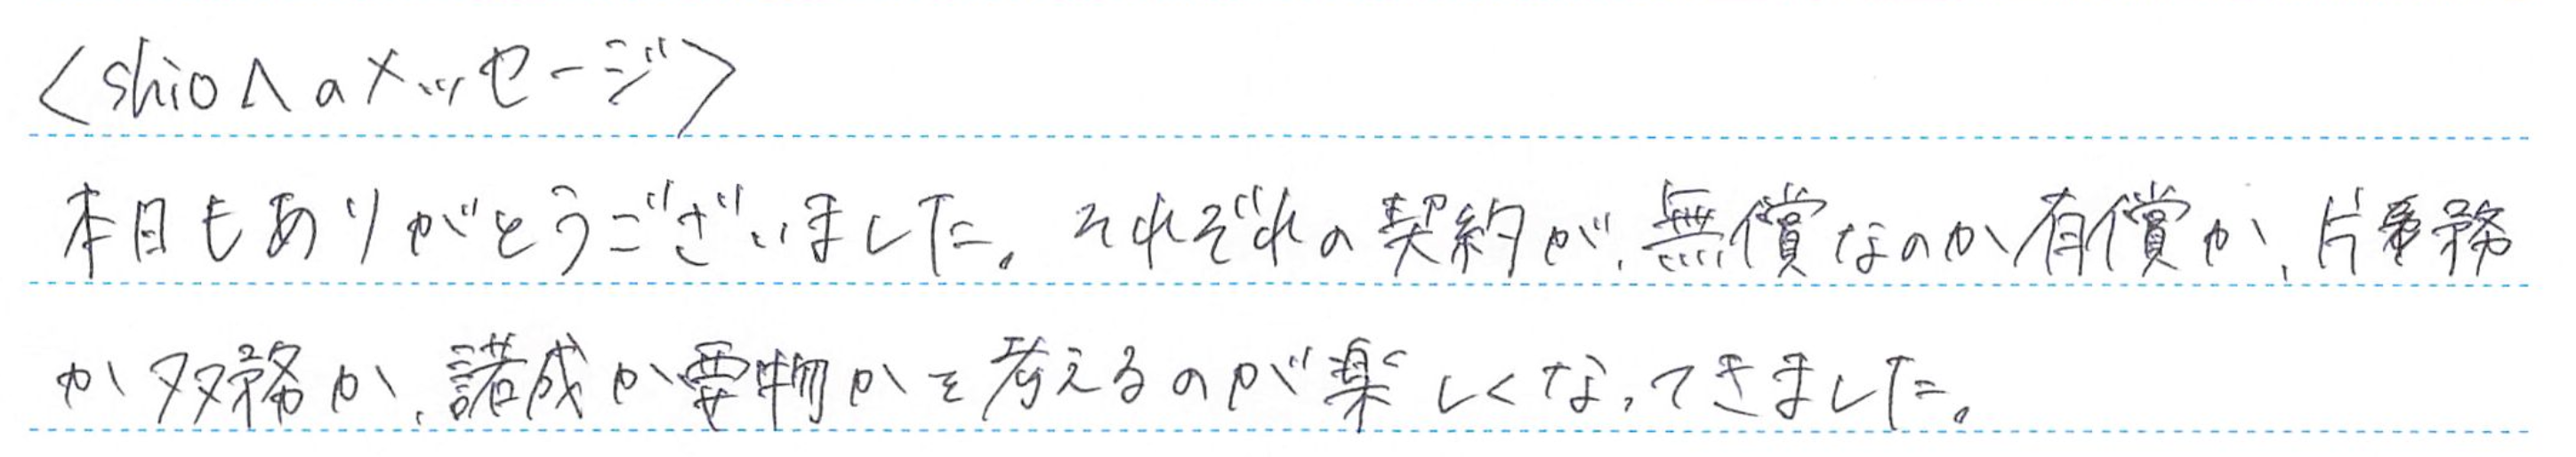 <shioへのメッセージ>
本日もありがとうございました。それぞれの契約が、無償なのか有償か、片務
か双務か、諾成か要物かを考えるのが楽しくなってきました。